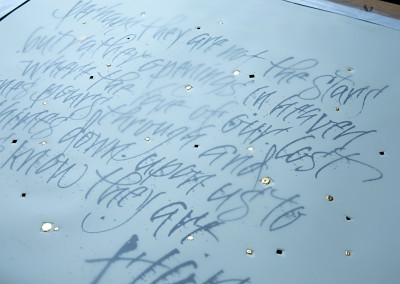 perhaps they are not the stars
but rather openings in heaven
where the love of our lost
ones pours through and
shines down upon us to
know they are